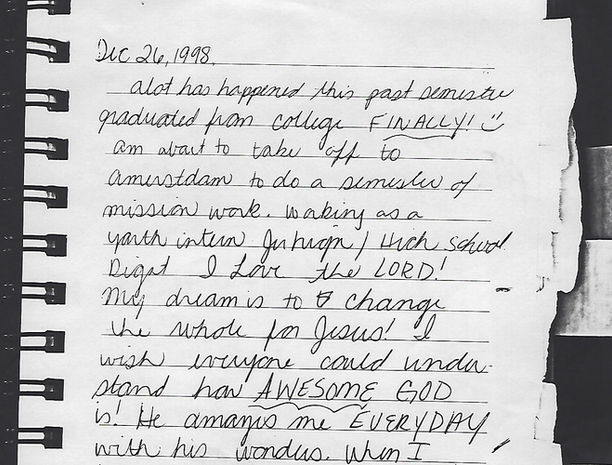 Dec 26, 1998.
alot has happened this past semester
graduated from college FINALLY!
am about to take off to
amerstdam to do a semester of
mission work. Working as a
youth intern Jr high / High school
I Love the LORD!
My dream is to change
the whole for Jesus! I
wish everyone could under-
stand how AWESOME GOD
is! He amazes me EVERYDAY
with his wonders. When I